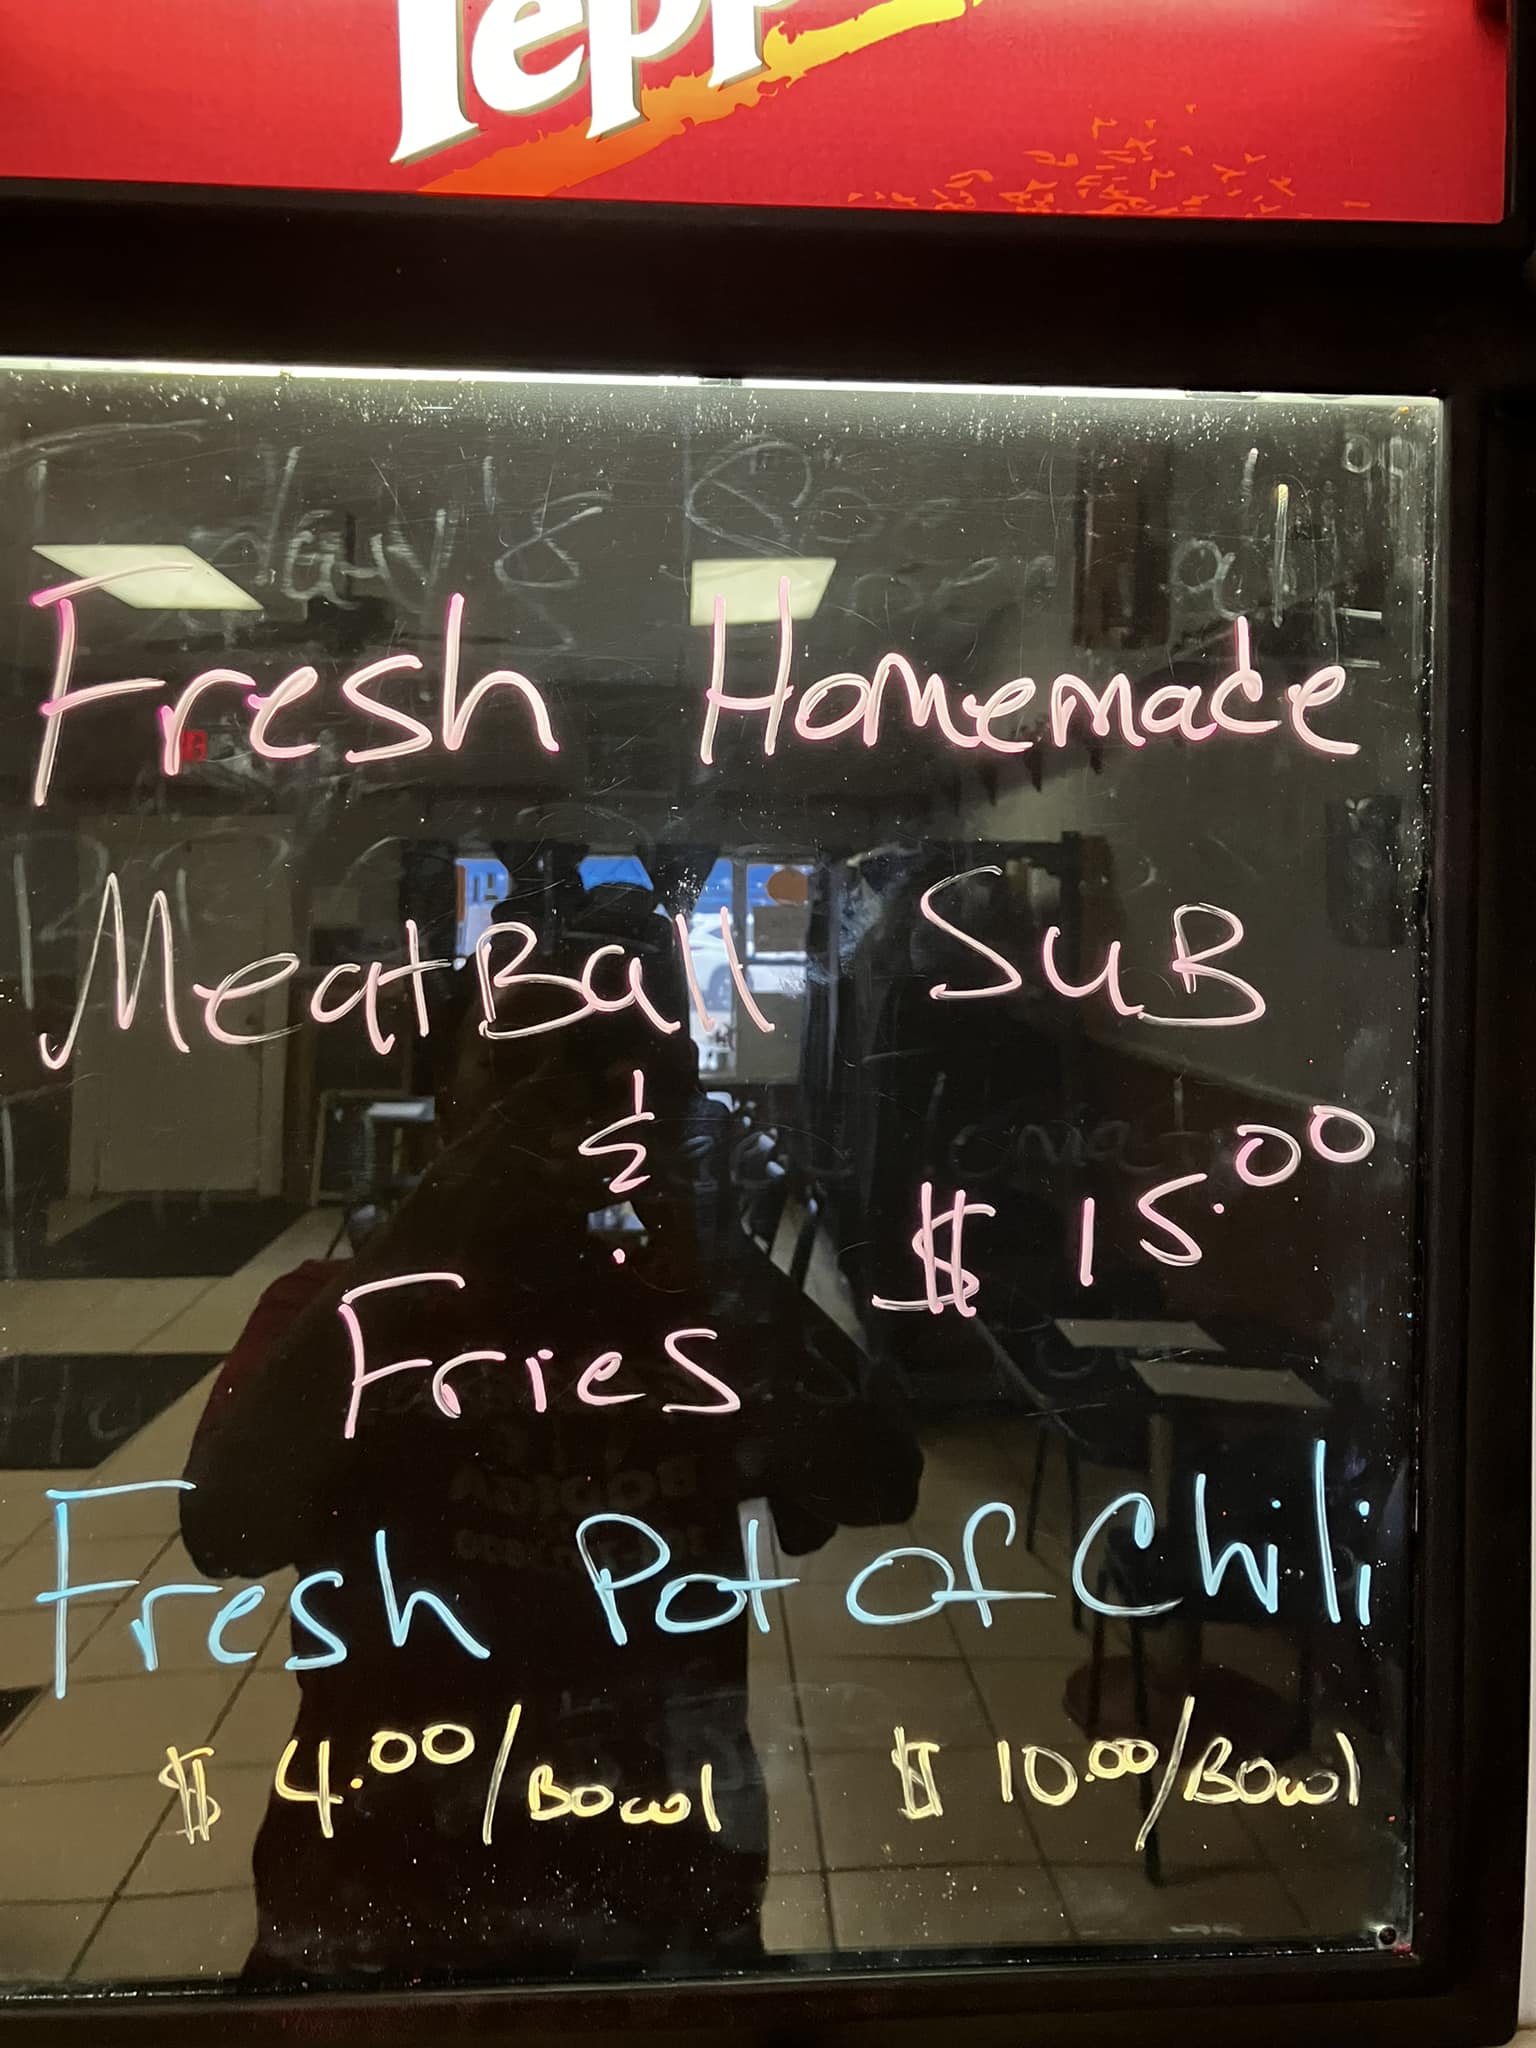 Pepp
Fresh Homemade
MeatBall SuB
&
$ 15.00
Fries
Fresh Pot of Chili
$ 4.00/Bowl $ 10.00/Bowl